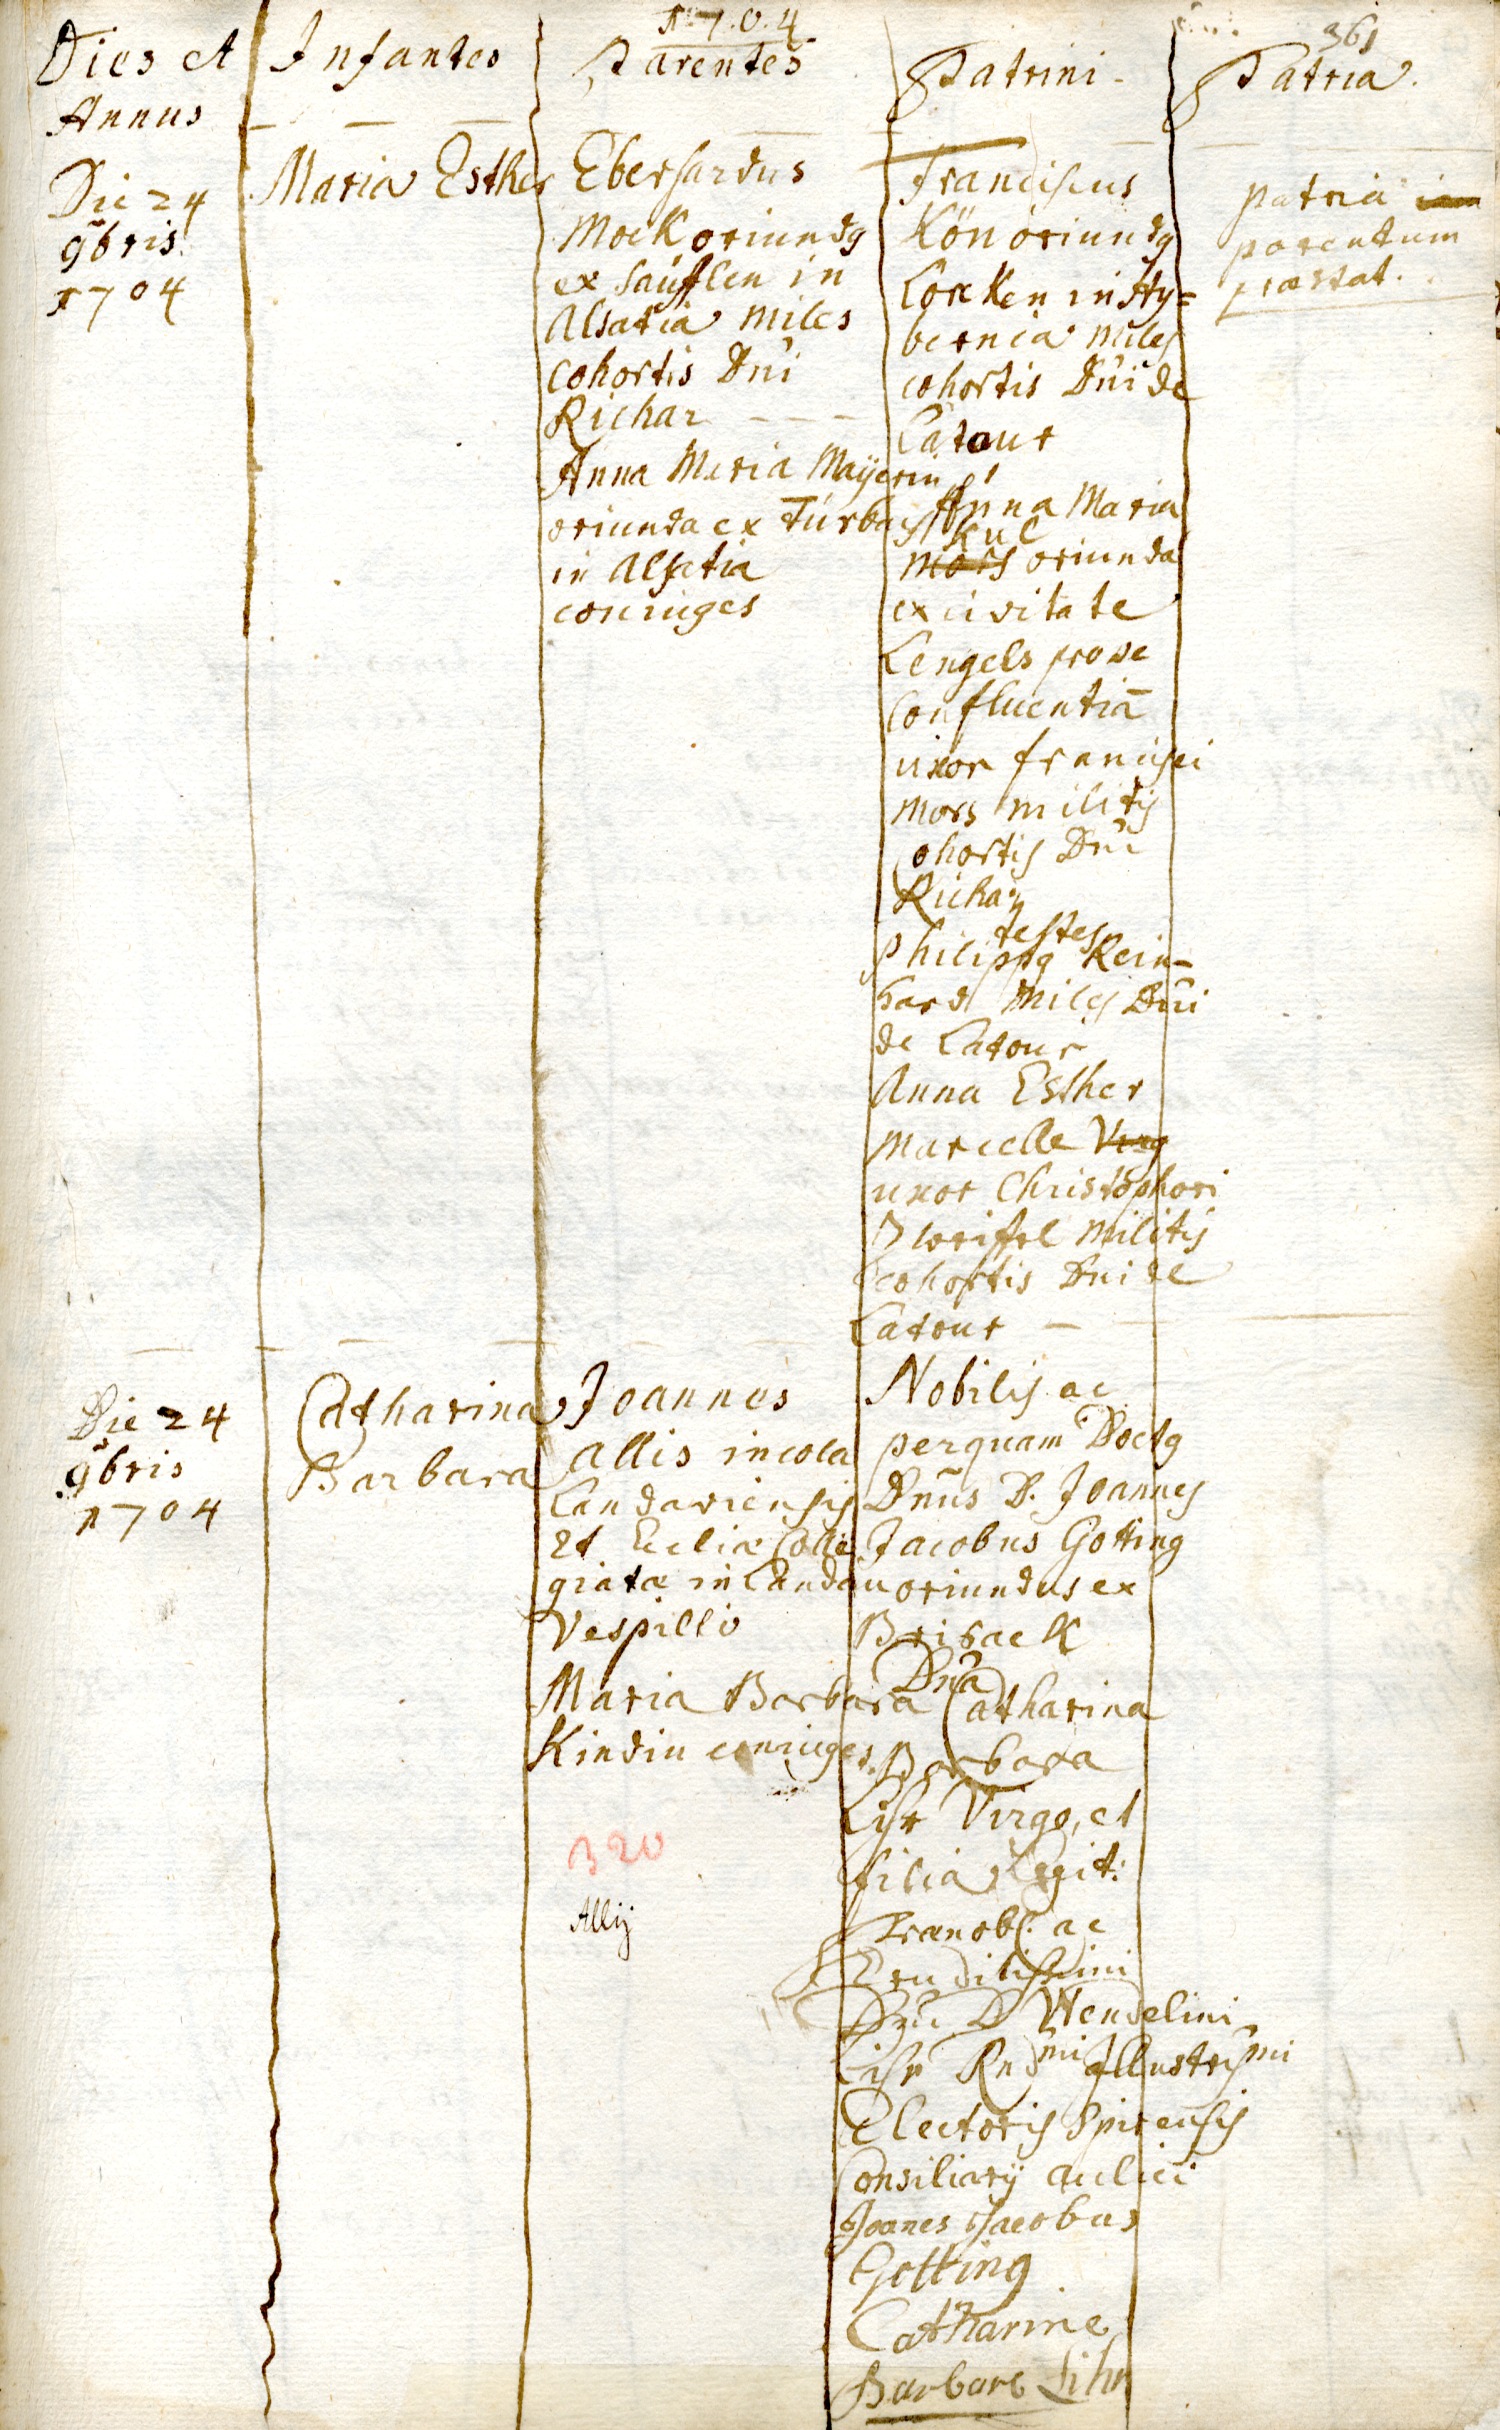 1704
361
Dies et
Annus
Infantes
Parentes
Patrini
Patria
Die 24
9bris
1704
Maria Esther
Eberhardus
Mock oriundg
ex Saufflen in
Alsatia miles
cohortis Dni
Richar
Anna Maria Mayerin
oriunda ex Turba
in Alsatia
coniuges
Franciscus
Kön oriundg
Loraken in Hy=
bernia miles
cohortis Dni de
Latour
Anna Maria
Kul
mors oriunda
ex civitate
Lengels prope
Confluentiā
uxor francisci
mors militis
cohortis Dni
Richar
testes
Philippg Rein-
hard miles Dni
de Latour
Anna Esther
Marcelle Virg
uxor Christophori
militis
cohortis Dni de
Latour
patria
parentum
praestat.
Die 24
9bris
1704
Catharina
Barbara
Joannes
Allis incola
Landaviensis
et Eccliae Colle
giatae in Landau
Vespillo
Maria Barbara
Kindin coniuges.
320
Allij
Nobilis ac
perquam Doctg
Dnus D. Joannes
Jacobus Gotting
oriundus ex
Brisack
Dna
Catharina
Barbara
Lihr Virgo, et
filia Legit:
Praenobl. ac
Eruditissimi
Dni D Wendelini
Lihr Rndmi Illustrismi
Electoris Spirensis
Consiliarij aulici
Joanes Jacobus
Gotting
Catharine
Barbare Lihr